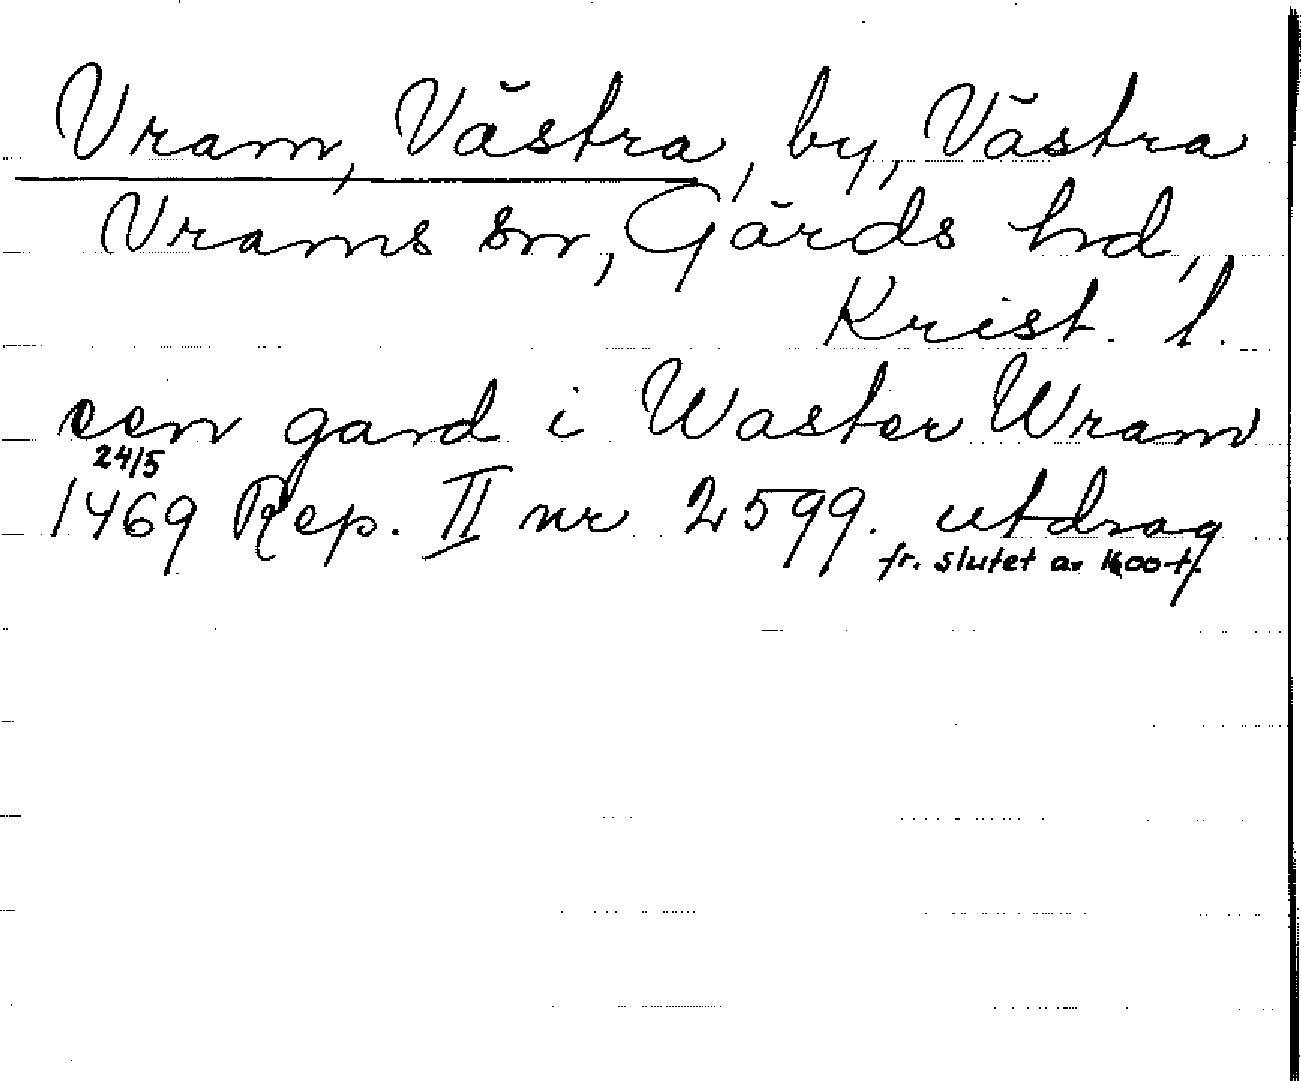 Vram, Västra, by, Västra
Vrams sn, Gärds hd,
Krist. l.
een gard i Waster Wram
24/5
1469 Rep. II nr 2599. utdrag
fr. slutet av 1600-t.